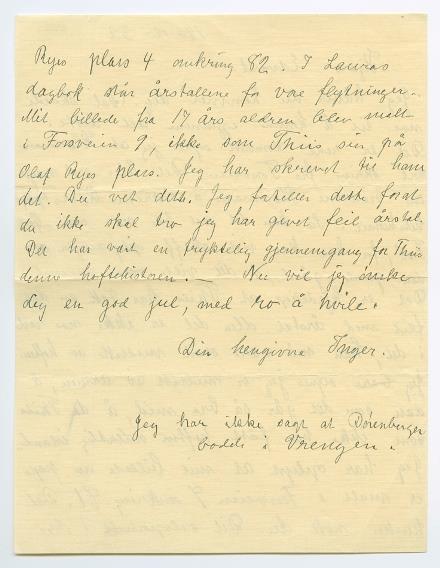 Ryes plass 4 omkring 82. I Lauras
dagbok står årstallene for våre flytninger.
Mit billede fra 17 års alderen blev malt
i Fossveien 9, ikke som Thiis sier på
Olaf Ryes plass. Jeg har skrevet til ham
det. Du vet dette. Jeg forteller dette forat
du ikke skal tro jeg har givet feil årstal.
Det har vært en fryktelig gjennemgang for Thiis
denne hoftehistorien. — Nu vil jeg ønske
dig en god jul, med ro å hvile.
Din hengivne Inger.
Jeg har ikke sagt at Dørenberger
bodde i Vrengen.